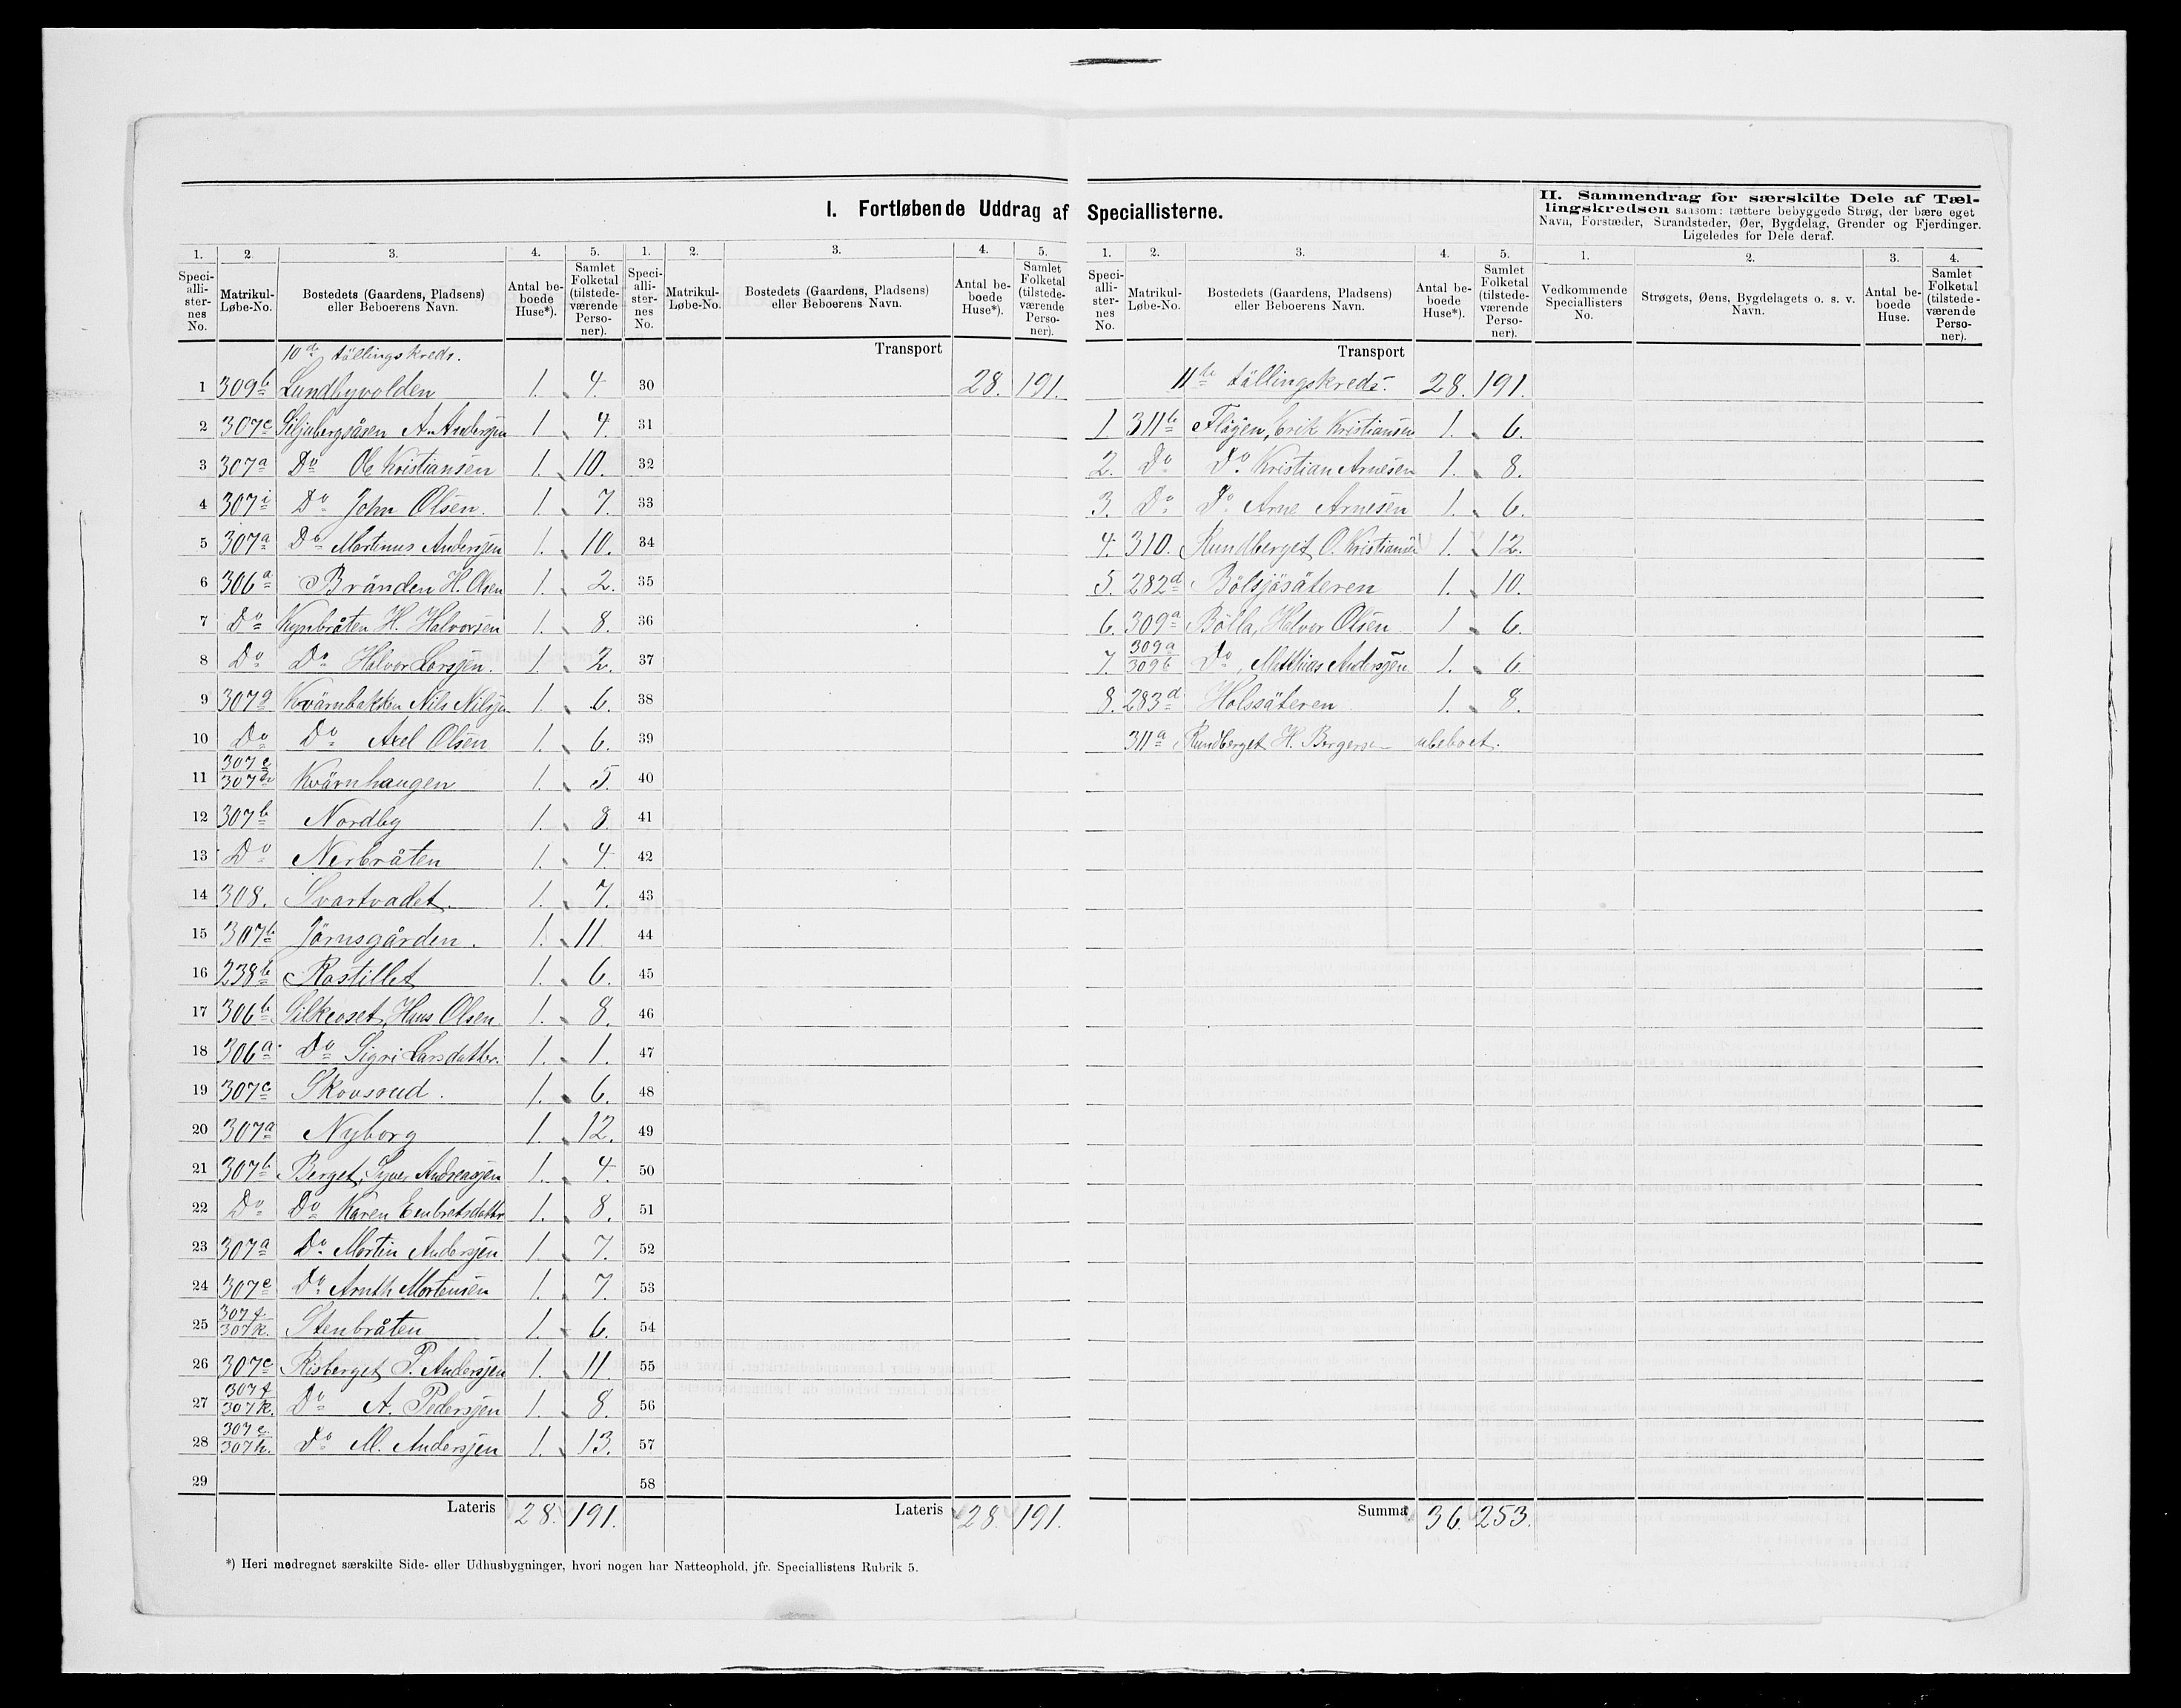 I. Fortløbende Uddrag af Speciallisterne.
II. Sammendrag for særskilte Dele af Tæl-
lingskredsen saasom: tættere bebyggede Strøg, der bære eget
Navn, Forstæder, Strandsteder, Øer, Bygdelag, Grender og Fjerdinger.
Ligeledes for Dele deraf.
1. 2. 3. 4. 5. 1. 2. 3. 4. 5. 1. 2. 3. 4. 5. 1. 2. 3. 4.
Speciallisternes No. Matrikul-Løbe-No. Bostedets (Gaardens, Pladsens) eller Beboerens Navn. Antal beboede Huse*). Samlet Folketal (tilstedeværende Personer).
Speciallisternes No. Matrikul-Løbe-No. Bostedets (Gaardens, Pladsens) eller Beboerens Navn. Antal beboede Huse*). Samlet Folketal (tilstedeværende Personer).
Speciallisternes No. Matrikul-Løbe-No. Bostedets (Gaardens, Pladsens) eller Beboerens Navn. Antal beboede Huse*). Samlet Folketal (tilstedeværende Personer).
Vedkommende Speciallisters No. Strøgets, Øens, Bygdelagets o. s. v. Navn. Antal beboede Huse. Samlet Folketal (tilstedeværende Personer).
10de tällingskreds.
1 309b Lundbyvolden 1. 4.
2 307c Siljubergsåsen A. Andersjen 1. 4.
3 307a Do Ole Kristiansen 1. 10.
4 307i Do John Olsen. 1. 7.
5 307a Do Martinus Andersjen 1. 10.
6 306a Bränden H. Olsen 1. 2.
7 Do Kynbråten H. Halvorsen 1. 8.
8 Do Do Halvor Larsjen. 1. 2.
9 307g Kvärnbakken Nils Nilsjen 1. 6.
10 Do Do Axel Olsen 1. 6.
11 307e 307h Kvärnhaugen 1. 5.
12 307b Nordby 1. 8.
13 Do Nerbråten 1. 4
14 308. Svartvadet. 1. 7.
15 307b Jörnsgården. 1. 11
16 238b Rastillet 1. 6.
17 306b Silkeoset, Hans Olsen 1. 8.
18 306a Do Sigri Larsdatter. 1. 1.
19 307c Skovsrud. 1. 6.
20 307a Nyborg 1. 12.
21 307b Berget, Syver Andreasjen 1. 4.
22 Do Do Karen Embretsdattr 1. 8.
23 307a Do Martin Andersjen 1. 7.
24 307e Do Arnth Mortensen 1. 7.
25 307f. 307k. Stenbråten 1. 6.
26 307c Risberget P. Andersjen 1. 11.
27 307f 307k. Do A. Pedersjen 1. 8.
28 307e 307h. Do M. Andersjen 1. 13.
29
Lateris 28. 191.
Transport
30 28. 191.
31
32
33
34
35
36
37
38
39
40
41
42
43
44
45
46
47
48
49
50
51
52
53
54
55
56
57
58
Lateris 28. 191.
Transport
11te tällingskreds. 28. 191.
1 311b Flågen, Erik Kristiansen 1. 6.
2. Do Do Kristian Arnesen 1. 8.
3. Do Do Arne Arnesen 1. 6.
4. 310. Rundberget, O. Kristiansen 1. 12.
5. 282d Bölsjösäteren 1. 10.
6. 309a Bölla, Halvor Olsen 1 6.
7. 309a 309b Do, Matthias Andersjen 1. 6
8. 283d Holssäteren 1. 8.
311a Rundberget H. Bergersen ubeboet.
Summa 36. 253.
*) Heri medregnet særskilte Side- eller Udhusbygninger, hvori nogen har Natteophold, jfr. Speciallistens Rubrik 5.